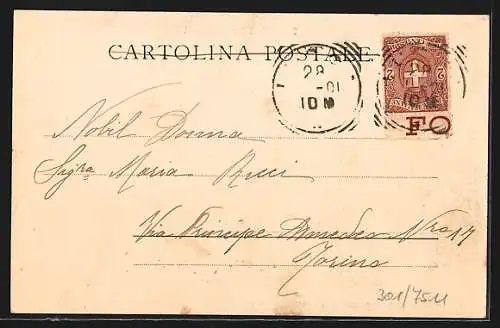 CARTOLINA POSTALE
28
-01
10 M
2 2
FO
Nobil Donna
Sig.ra Maria Ricci
Via Principe Amedeo N.ro 17
Torino
301/7511